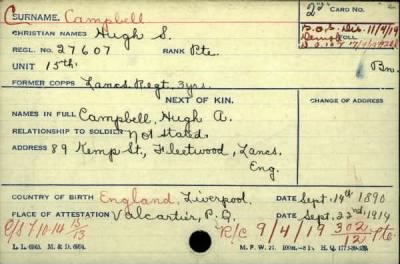 C SURNAME. Campbell
2nd CARD NO.
CHRISTIAN NAMES Hugh S.
REGL. NO. 27607 RANK Pte.
S.O.S. Dis. 11/4/19
Demob
UNIT 15th. Bn.
FORMER CORPS Lancs. Regt. 3yrs.
NEXT OF KIN.
CHANGE OF ADDRESS
NAMES IN FULL Campbell, Hugh A.
RELATIONSHIP TO SOLDIER Not stated.
ADDRESS 89 Kemp St., Fleetwood, Lancs.
Eng.
COUNTRY OF BIRTH England, Liverpool. DATE Sept. 19th 1890
PLACE OF ATTESTATION Valcartier, P.Q. DATE Sept. 22nd 1914
O/S 7-10-14 15/13 R/C 9/4/19 302/21 Pte.
L. L. M. & D. M. F. W. 27.